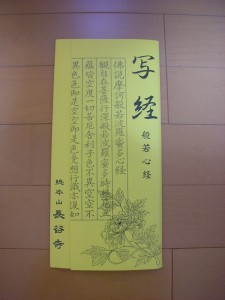 写経
般若心経
佛説摩訶般若波羅蜜多心経
観自在菩薩行深般若波羅蜜多時照見五
蘊皆空度一切苦厄舎利子色不異空空不
異色色即是空空即是色受想行識亦復如
総本山 長谷寺